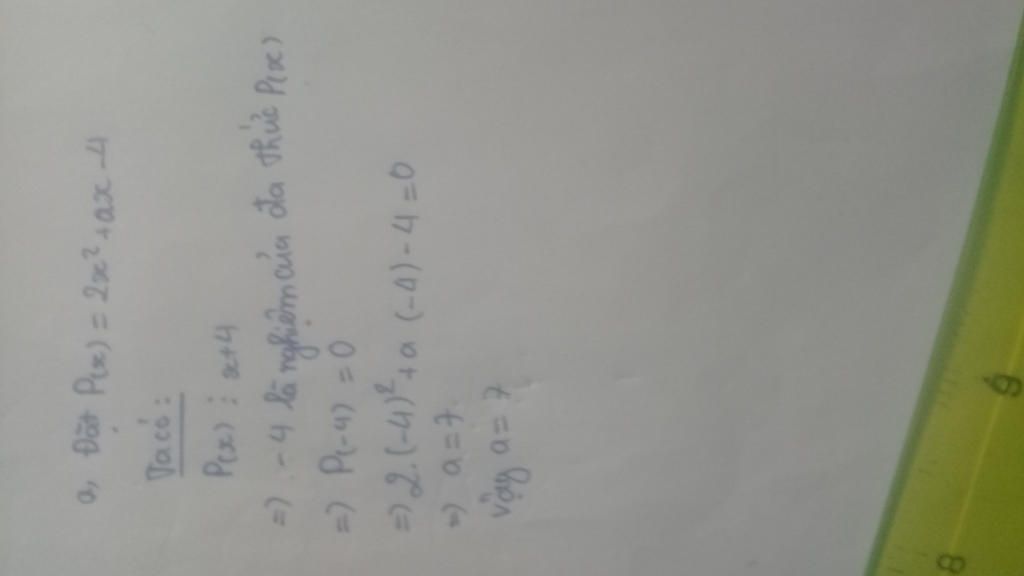 a, Đặt P(x) = 2x² + ax - 4
Ta có:
P(x) ⋮ x+4
=) -4 là nghiệm của đa thức P(x)
=) P(-4) = 0
=) 2.(-4)² + a (-4) - 4 = 0
=) a = 7
Vậy a = 7
9
8